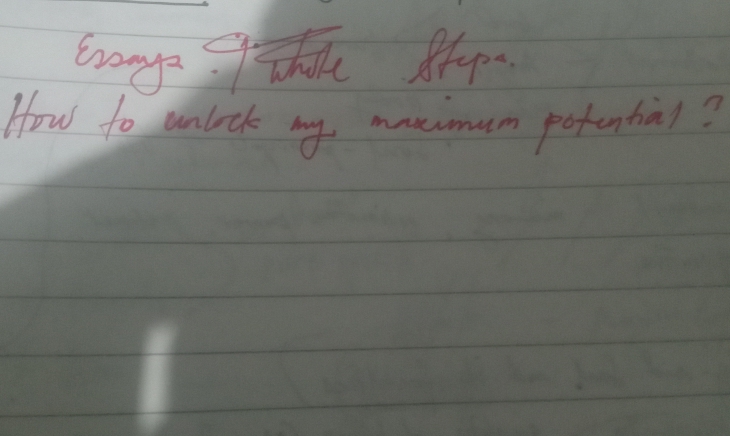 Essays. Whole Steps.
How to unlock my maximum potential?